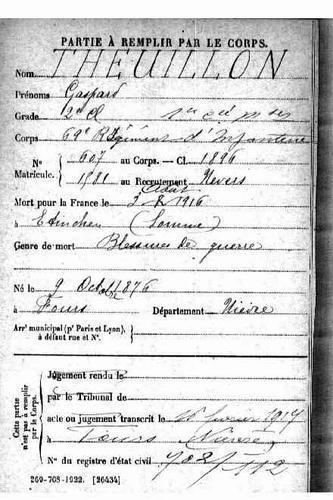 PARTIE À REMPLIR PAR LE CORPS.
Nom THEUILLON
Prénoms Gaspard
Grade 2e Cl 1re Cie Mses
Corps 69e Régiment d'Infanterie
No 607 au Corps. — Cl. 1896
Matricule. 1981 au Recrutement Nevers
Mort pour la France le 3 1916
à Etinehem (Somme)
Genre de mort Blessures de guerre
Né le 9 Octobre 1876
à Fours Département Nièvre
Arrt municipal (pr Paris et Lyon),
à défaut rue et No.
Cette partie
n'est pas à remplir
par le Corps.
Jugement rendu le
par le Tribunal de
acte ou jugement transcrit le 16 février 1917
à Fours Nièvre
No du registre d'état civil 708/112
269-708-1922. [26434]